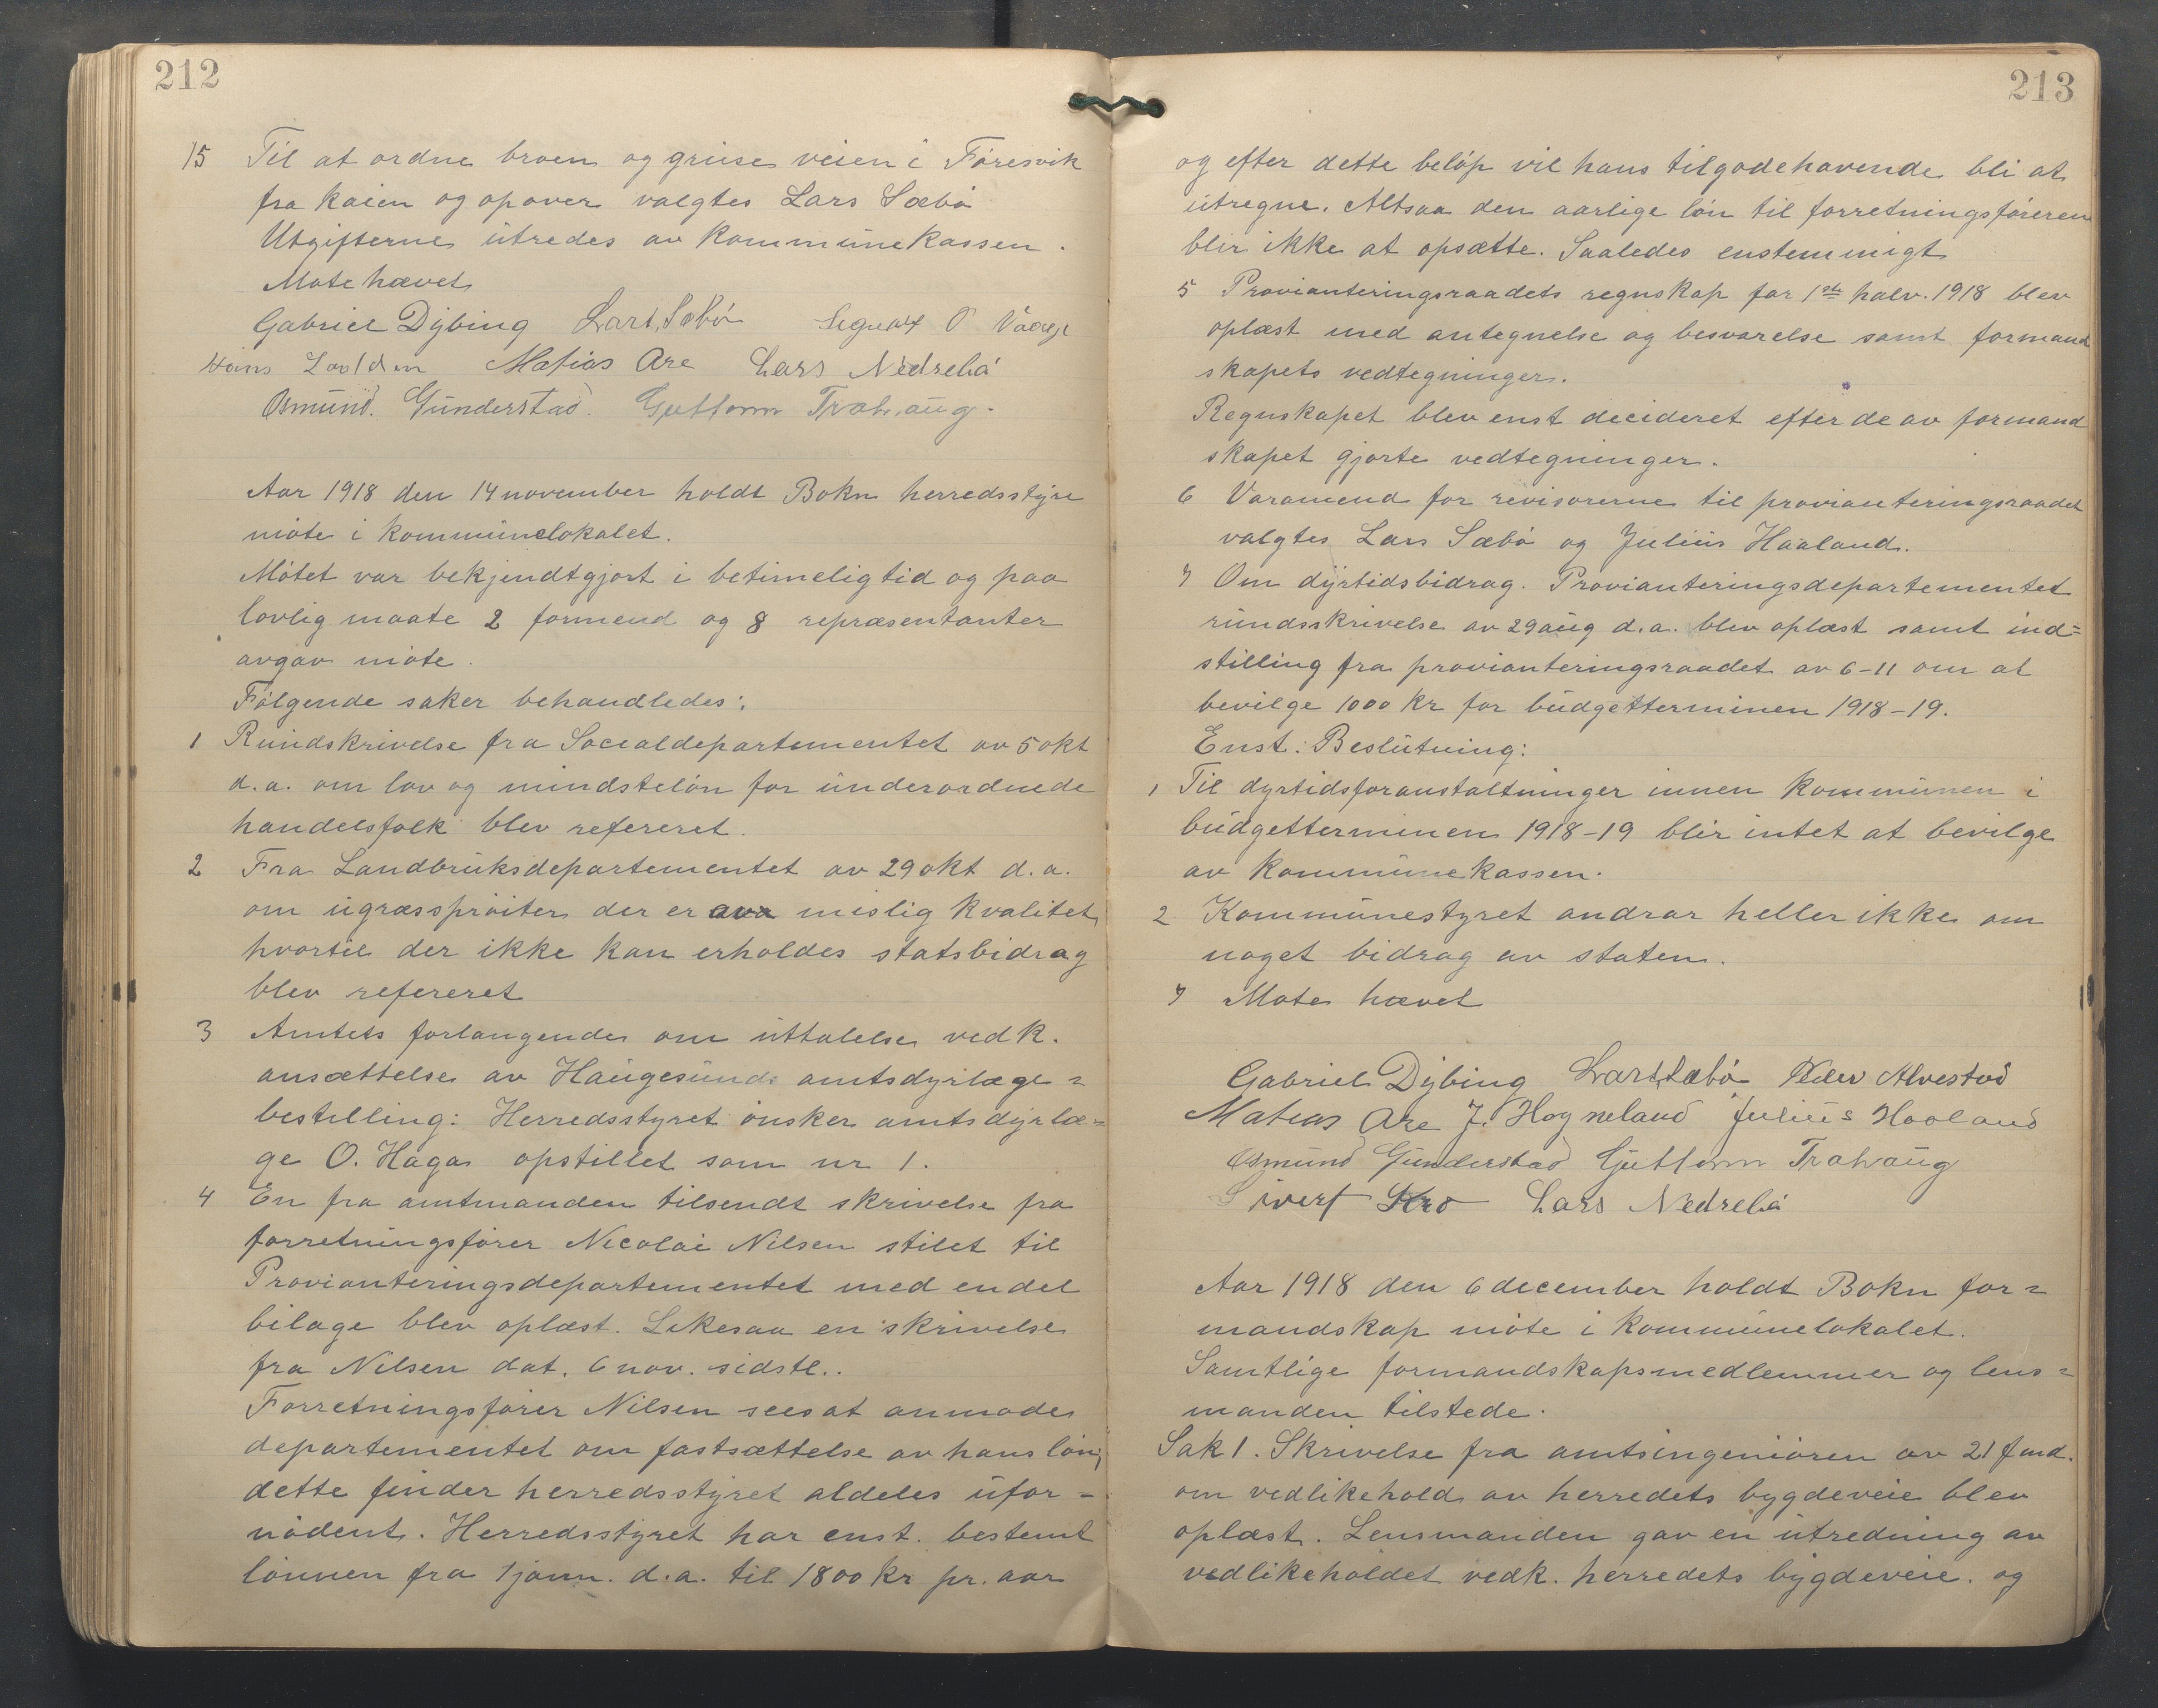 212
15 Til at ordne broen og gruse veien i Føresvik
fra kaien og opover valgtes Lars Sæbø
Utgifterne utredes av kommunekassen.
Møte hævet
Gabriel Dybing Lars Sæbø O Vaage
Hans Matias Are Lars Nedrebø
Osmund. Gunderstad. Guttorm Trohaug.
Aar 1918 den 14 november holdt Bokn herredsstyre
møte i kommunelokalet.
Møtet var bekjendtgjort i betimelig tid og paa
lovlig maate 2 formend og 8 repræsentanter
avgav møte.
Følgende saker behandledes:
1 Rundskrivelse fra Socialdepartementet av 5 okt
d.a. om lov og mindsteløn for underordnede
handelsfolk blev refereret.
2 Fra Landbruksdepartementet av 29 okt d.a.
om ugrassprøiter der er ava mislig kvalitet,
hvortil der ikke kan erholdes statsbidrag
blev refereret
3 Amtets forlangende om uttalelse vedk.
ansættelse av Haugesunds amtsdyrlæge=
bestilling: Herredsstyret ønsker amtsdyrlæ=
ge O. Haga opstillet som nr 1.
4 En fra amtmanden tilsendt skrivelse fra
forretningsfører Nicolai Nilsen stilet til
Provianteringsdepartementet med endel
bilage blev oplæst. Likesaa en skrivelse
fra Nilsen dat. 6 nov. sidstl..
Forretningsfører Nilsen sees at anmode
departementet om fastsættelse av hans løn,
dette finder herredsstyret aldeles ufor-
nødent. Herredsstyret har enst. bestemt
lønnen fra 1 jann. d.a. til 1800 kr pr. aar
213
og efter dette beløp vil hans tilgodehavende bli at
utregne. Altsaa den aarlige løn til forretningsføreren
blir ikke at opsætte. Saaledes enstemmigt
5 Provianteringsraadets regnskap for 1ste halv. 1918 blev
oplæst med antegnelse og besvarelse samt formand
skapets vedtegninger.
Regnskapet blev enst decideret efter de av formand
skapet gjorte vedtegninger.
6 Varamend for revisorerne til provianteringsraadet
valgtes Lars Sæbø og Julius Haaland.
7 Om dyrtidsbidrag. Provianteringsdepartementet
rundsskrivelse av 29 aug d.a. blev oplæst samt ind=
stilling fra provianteringsraadet av 6-11 om at
bevilge 1000 kr for budgetterminen 1918-19.
Enst: Beslutning:
1 Til dyrtidsforanstaltninger innen kommunen i
budgetterminen 1918-19 blir intet at bevilge
av kommunekassen.
2 Kommunestyret andrar heller ikke om
noget bidrag av staten.
7 Møte hævet
Gabriel Dybing Lars Sæbø Peder Alvestad
Matias Are J. Hogneland Julius Haaland
Osmund Gunderstad Guttorm Trohaug
Sivert Kro Lars Nedrebø
Aar 1918 den 6 december holdt Bokn for=
mandskap møte i kommunelokalet.
Samtlige formandskapsmedlemmer og lens=
manden tilstede.
Sak 1. Skrivelse fra amtsingeniøren av 21 f md.
om vedlikehold av herredets bygdeveie blev
oplæst. Lensmanden gav en utredning av
vedlikeholdet vedk. herredets bygdeveie. og